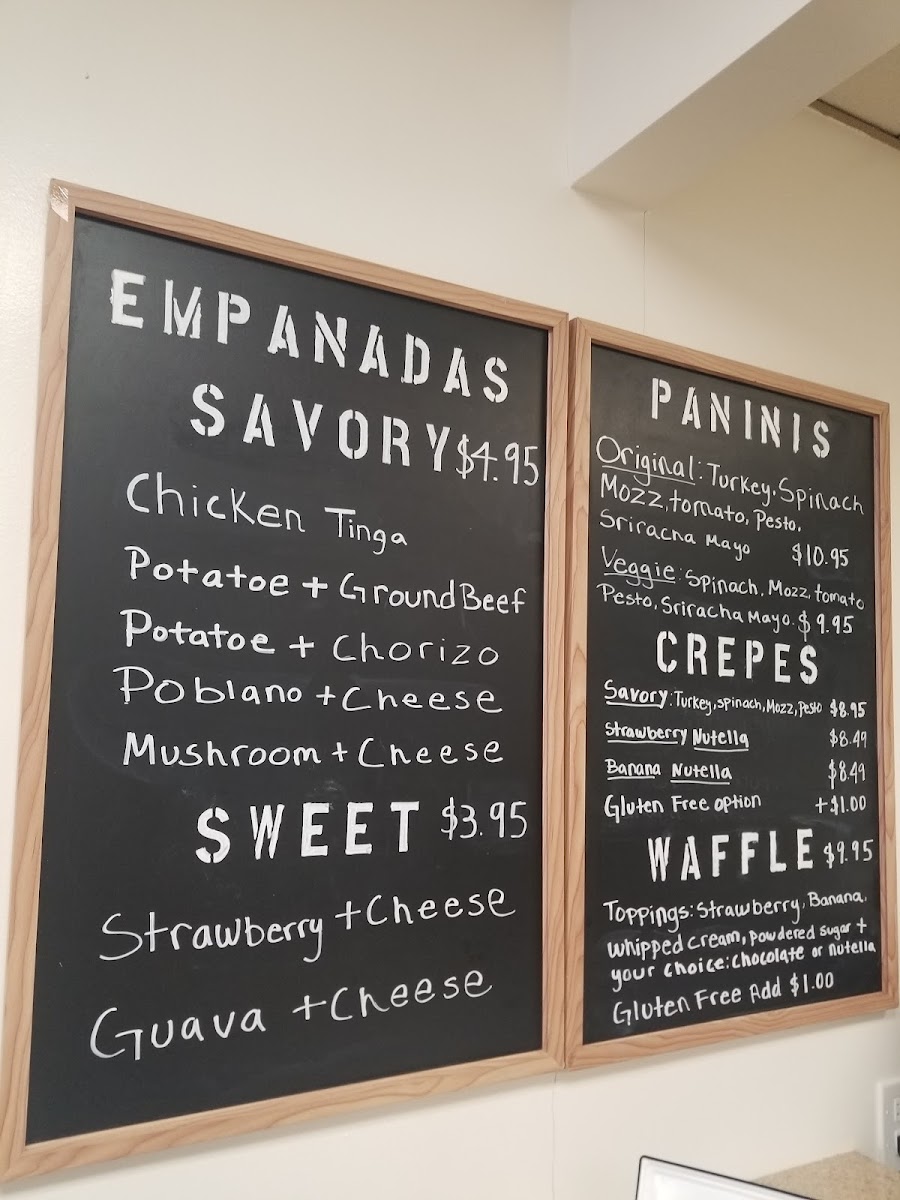 EMPANADAS
SAVORY $4.95
Chicken Tinga
Potatoe + Ground Beef
Potatoe + Chorizo
Poblano + Cheese
Mushroom + Cheese
SWEET $3.95
Strawberry + Cheese
Guava + Cheese
PANINIS
Original: Turkey, Spinach
Mozz, tomato, Pesto,
Sriracha Mayo $10.95
Veggie: Spinach, Mozz, tomato
Pesto, Sriracha Mayo. $9.95
CREPES
Savory: Turkey, spinach, Mozz, Pesto $8.95
Strawberry Nutella $8.49
Banana Nutella $8.49
Gluten Free option +$1.00
WAFFLE $9.95
Toppings: Strawberry, Banana,
whipped cream, powdered sugar +
your choice: chocolate or nutella
Gluten Free Add $1.00